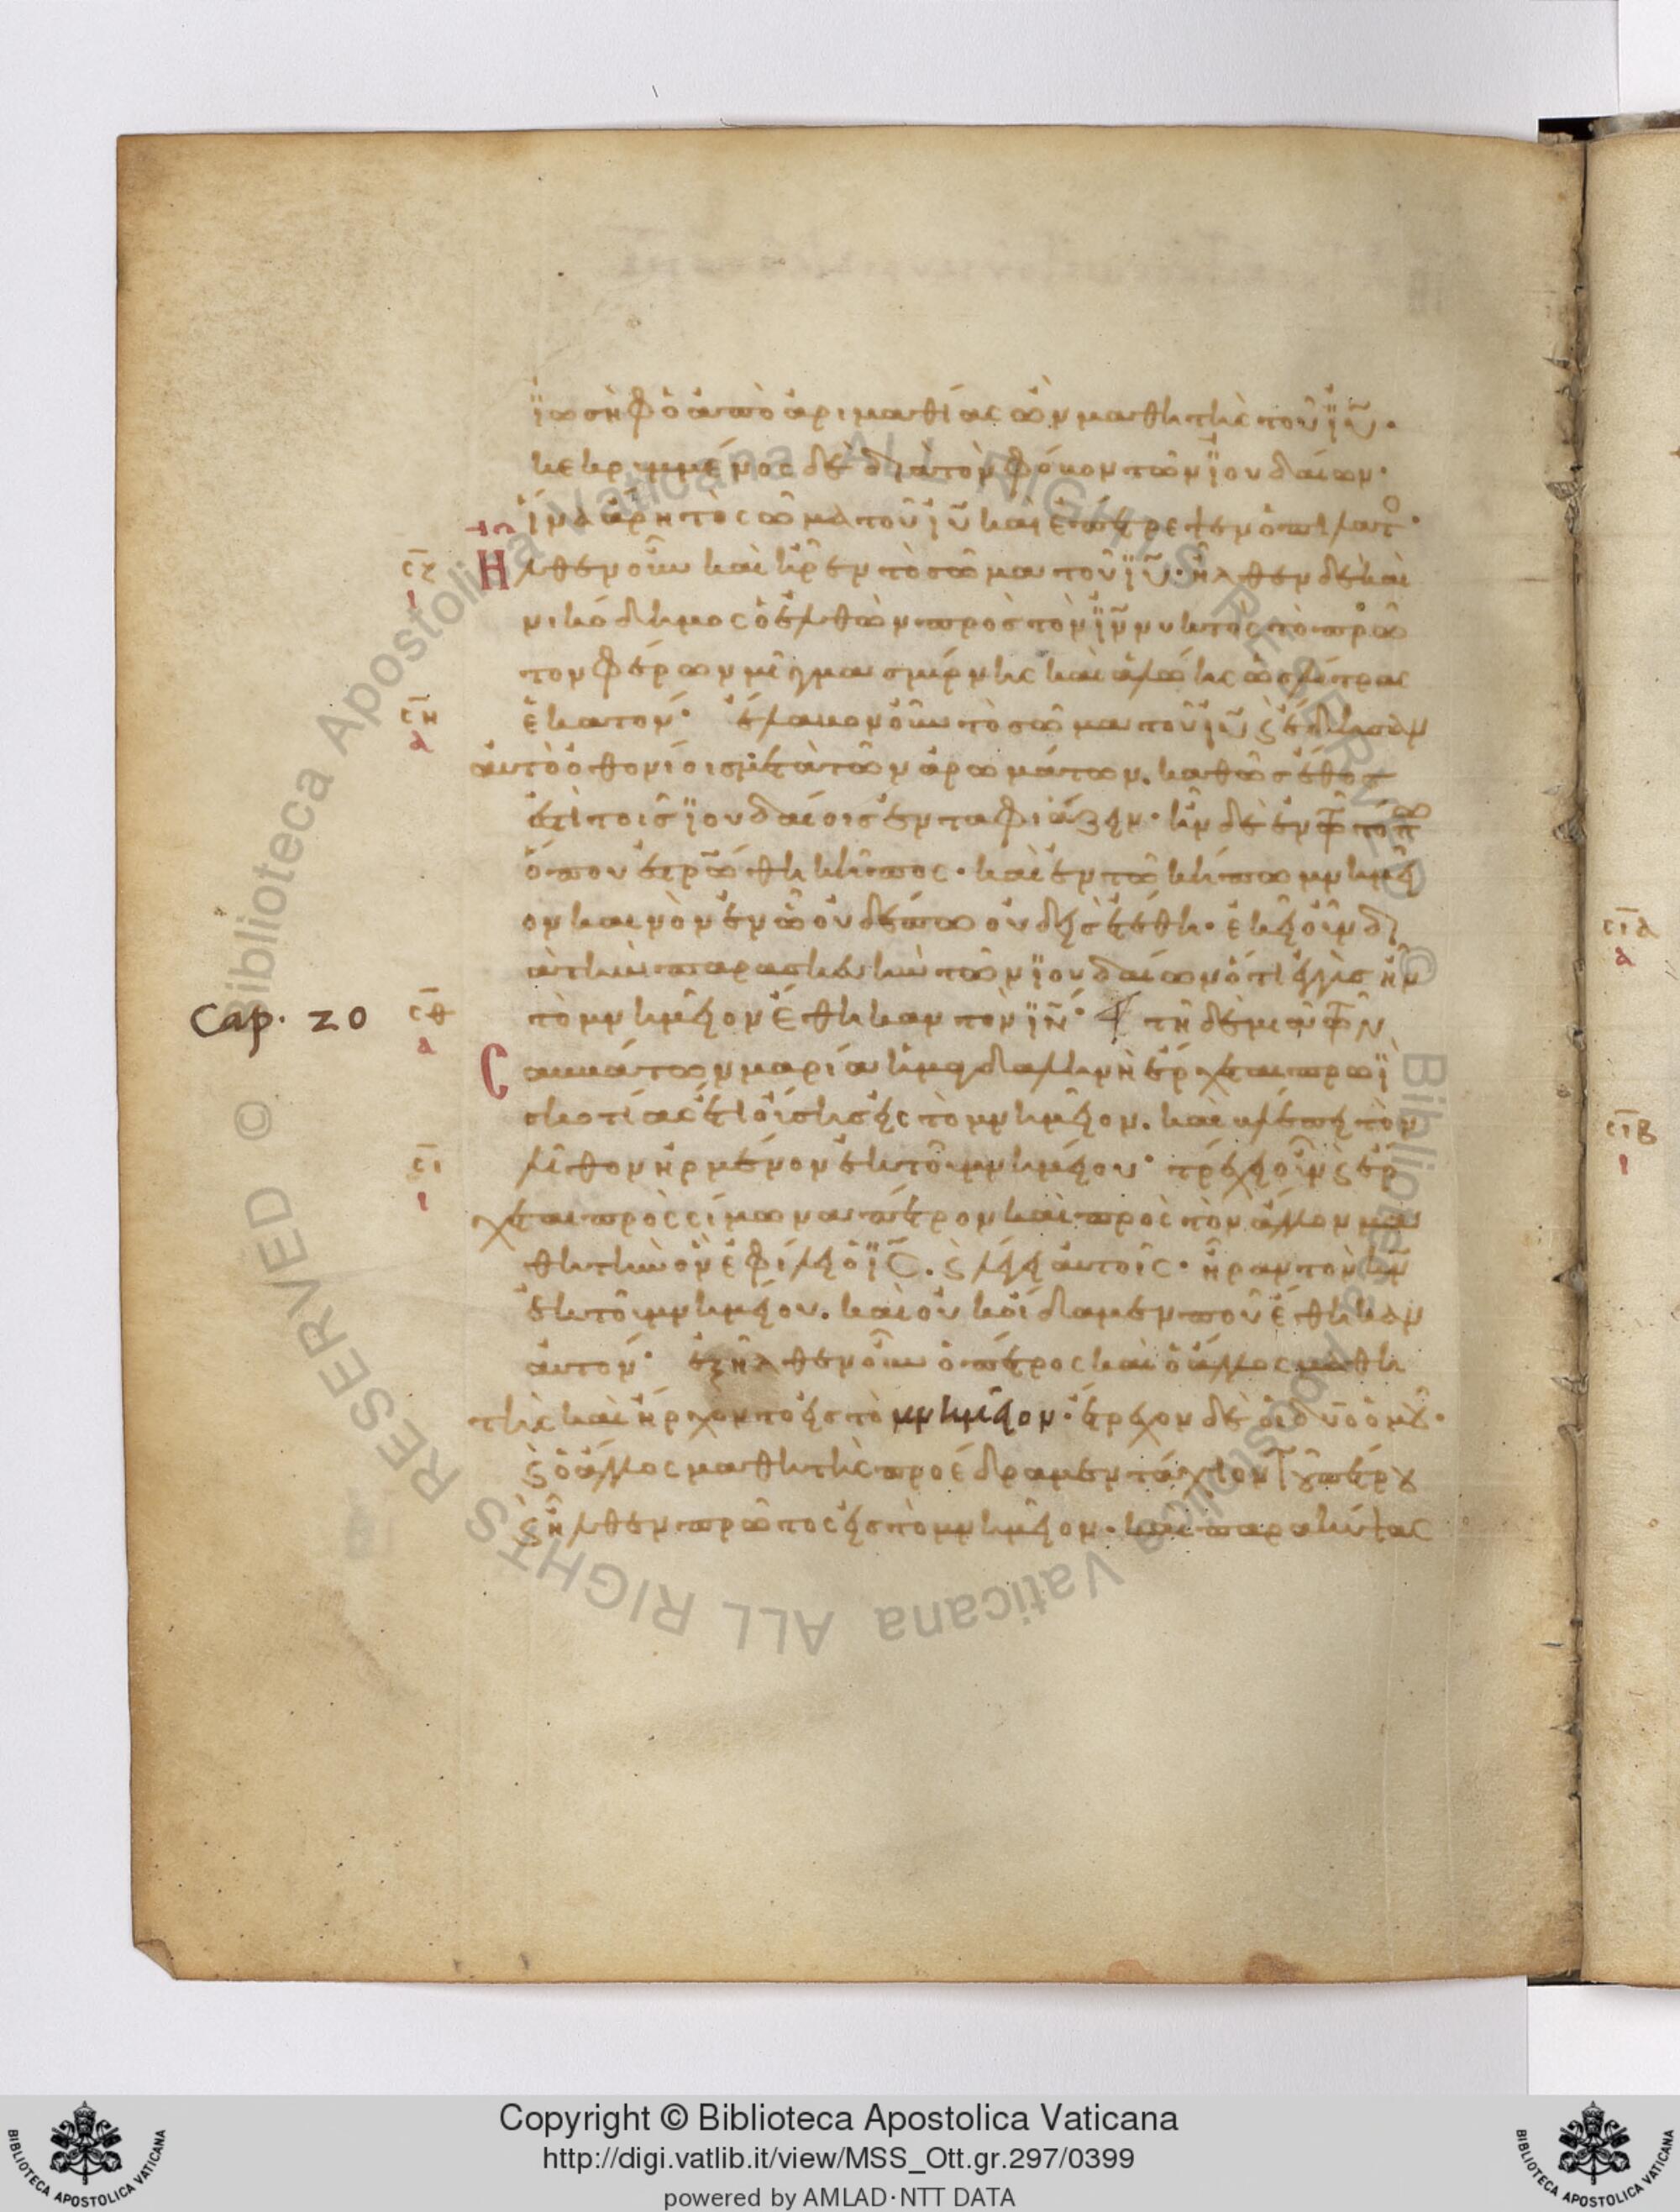 ἰωσὴφ ὁ ἀπὸ ἀριμαθίας ὢν μαθητὴς τοῦ ιυ.
κεκρυμμένος δὲ διὰ τὸν φόβον τῶν ἰουδαίων.
ἵνα ἄρη τὸ σῶμα τοῦ ιυ καὶ ἐπέτρεψεν ὁ πιλατ
Ηλθεν οὖν καὶ ἦρεν τὸ σῶμα τοῦ ιυ. ἦλθεν δὲ καὶ
νικόδημος ὁ ἐλθὼν πρὸς τὸν ιν νυκτὸς τὸ πρῶ
τον φέρων μίγμα σμύρνης καὶ ἀλώης ὡς λίτρας
ἑκατόν. ἔλαβον οὖν τὸ σῶμα τοῦ ιυ ϛ ἔδησαν
αὐτὸ ὀθονίοις μετὰ τῶν ἀρωμάτων. καθὼς ἔθος
ἐστὶ τοῖς ἰουδαίοις ἐνταφιάζειν. ἦν δὲ ἐν τῶ τόπ
ὅπου ἐστρώθη κῆπος. καὶ ἐν τῶ κήπω μνημεῖ
ον καινὸν ἐν ὧ οὐδέπω οὐδεὶς ἐτέθη. ἐκεῖ οὖν δι
ὰ τὴν παρασκευὴν τῶν ἰουδαίων ὅτι ἐγγὺς ἦν
Cap. 20 τὸ μνημεῖον ἔθηκαν τὸν ιν. τῆ δὲ μιᾶ τῶν
Cαββάτων μαρία ἡ μαγδαληνὴ ἔρχεται πρωῒ
σκοτίας ἔτι οὔσης εἰς τὸ μνημεῖον. καὶ βλέπει τὸν
λίθον ἠρμένον ἐκ τοῦ μνημείου. τρέχει οὖν ϛ ἔρ
χεται πρὸς σίμωνα πέτρον καὶ πρὸς τὸν ἄλλον μα
θητὴν ὃν ἐφίλει ὁ ις. ϛ λέγει αὐτοῖς. ἦραν τὸν κν
ἐκ τοῦ μνημείου. καὶ οὐκ οἴδαμεν ποῦ ἔθηκαν
αὐτόν. ἐξῆλθεν οὖν ὁ πέτρος καὶ ὁ ἄλλος μαθη
τὴς καὶ ἤρχοντο εἰς τὸ μνημεῖον. ἔτρεχον δὲ οἱ δύο ὁμοῦ.
ϛ ὁ ἄλλος μαθητὴς προέδραμεν τάχιον τοῦ πέτρου
ϛ ἦλθεν πρῶτος εἰς τὸ μνημεῖον. καὶ παρακύψας
cζ
ι
cη
α
cθ
α
cι
ι
cια
α
cιβ
ι
© Biblioteca Apostolica Vaticana ALL RIGHTS RESERVED
© Biblioteca Apostolica Vaticana ALL RIGHTS RESERVED
Copyright © Biblioteca Apostolica Vaticana
http://digi.vatlib.it/view/MSS_Ott.gr.297/0399
powered by AMLAD·NTT DATA
BIBLIOTECA APOSTOLICA VATICANA
BIBLIOTECA APOSTOLICA VATICANA